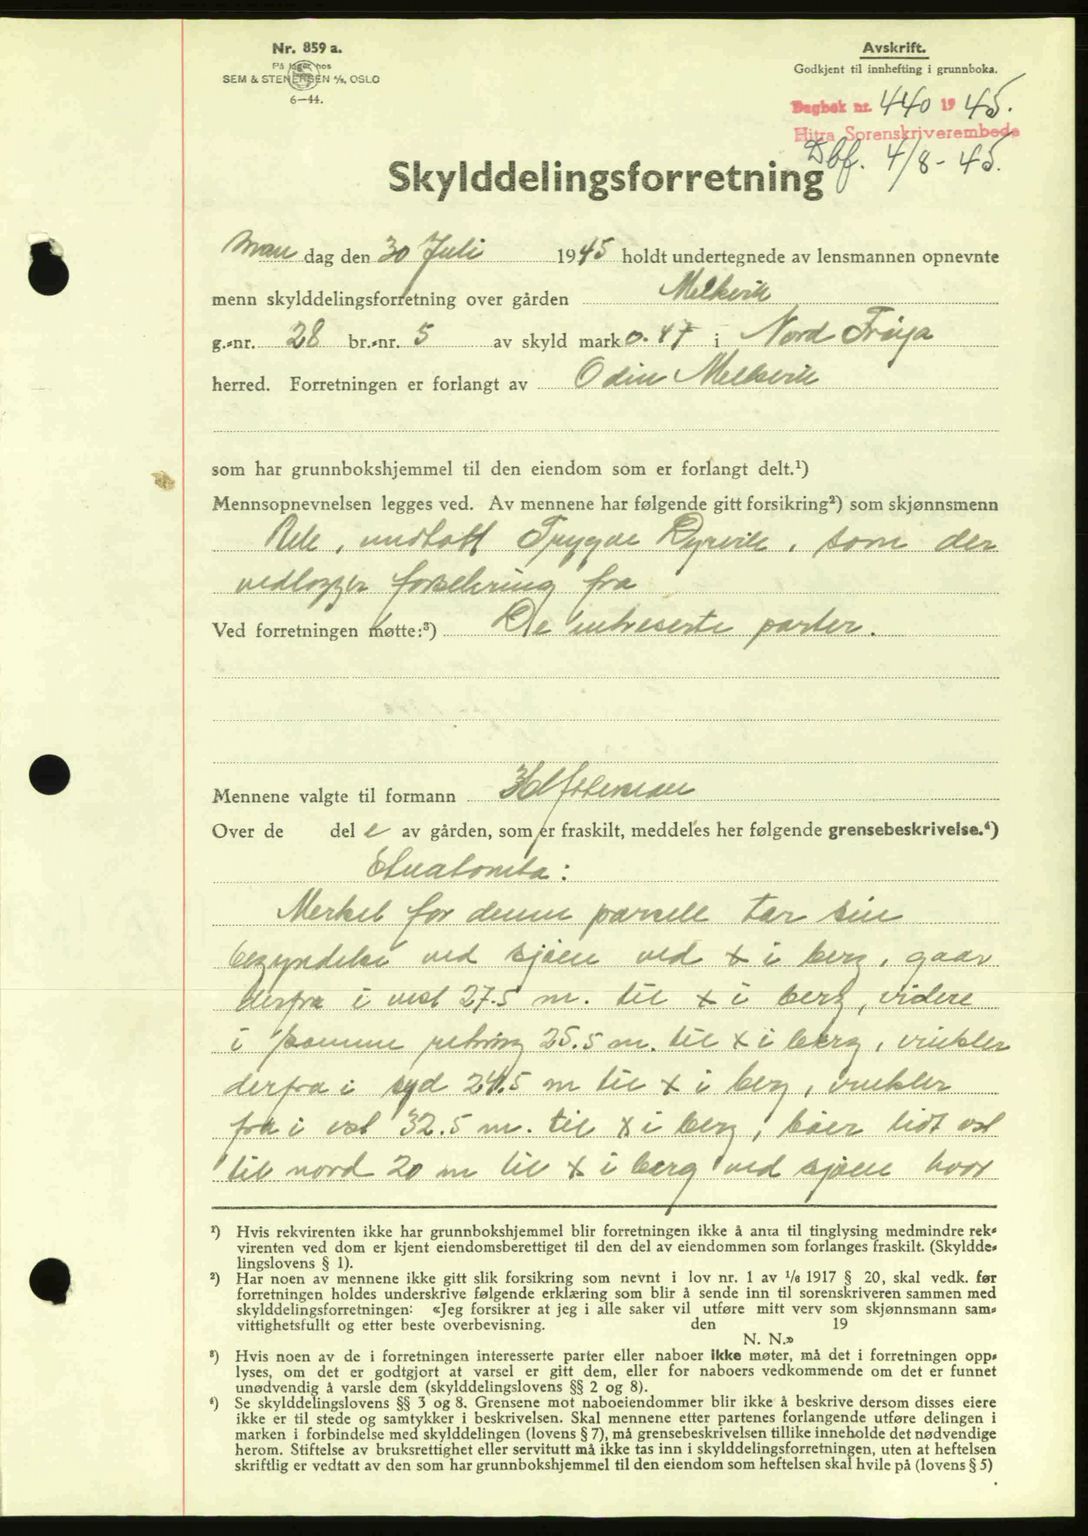 Nr. 859 a.
På lager hos
SEM & STENERSEN A/S, OSLO
6—44.
Avskrift.
Godkjent til innhefting i grunnboka.
Dagbok nr. 440 19 45.
Hitra Sorenskriverembede
Dbf. 4/8 - 45.
Skylddelingsforretning
Man dag den 30 Juli 1945 holdt undertegnede av lensmannen opnevnte
menn skylddelingsforretning over gården Melkvik
g.-nr. 28 br.-nr. 5 av skyld mark 0.47 i Nord Frøya
herred. Forretningen er forlangt av Odin Melkvik
som har grunnbokshjemmel til den eiendom som er forlangt delt.¹)
Mennsopnevnelsen legges ved. Av mennene har følgende gitt forsikring²) som skjønnsmenn
undtatt Trygve Dyrvik, som der
vedlegges forsikring fra
Ved forretningen møtte:³) De intreserte parter.
Mennene valgte til formann
Over de del e av gården, som er fraskilt, meddeles her følgende grensebeskrivelse.⁴)
Merket for denne parsell tar sin
begyndelse ved sjøen ved x i berg, gaar
derfra i vest 27.5 m. til x i berg, videre
i samme retning 25.5 m. til x i berg, vinkler
derfra i syd 24.5 m til x i berg, vinkler
fra i vest 32.5 m. til x i berg, bøier lidt vest
til nord 20 m til x i berg ved sjøen hvor
¹) Hvis rekvirenten ikke har grunnbokshjemmel blir forretningen ikke å anta til tinglysing medmindre rek-
virenten ved dom er kjent eiendomsberettiget til den del av eiendommen som forlanges fraskilt. (Skyldde-
lingslovens § 1).
²) Har noen av mennene ikke gitt slik forsikring som nevnt i lov nr. 1 av 1/6 1917 § 20, skal vedk. før
forretningen holdes underskrive følgende erklæring som blir å sende inn til sorenskriveren sammen med
skylddelingsforretningen: «Jeg forsikrer at jeg i alle saker vil utføre mitt verv som skjønnsmann sam-
vittighetsfullt og etter beste overbevisning. den 19
N. N.»
³) Hvis noen av de i forretningen interesserte parter eller naboer ikke møter, må det i forretningen opp-
lyses, om det er godtgjort at varsel er gitt dem, eller for naboers vedkommende om det er funnet
unødvendig å varsle dem (skylddelingslovens §§ 2 og 8).
⁴) Se skylddelingslovens §§ 3 og 8. Grensene mot naboeiendommer blir ikke å beskrive dersom disses eiere
ikke er til stede og samtykker i beskrivelsen. Skal mennene etter partenes forlangende utføre delingen i
marken i forbindelse med skylddelingen (lovens § 7), må grensebeskrivelsen tillike inneholde det nødvendige
herom. Stiftelse av bruksrettighet eller servitutt må ikke tas inn i skylddelingsforretningen, uten at heftelsen
skriftlig er vedtatt av den som har grunnbokshjemmel til den eiendom som heftelsen skal hvile på (lovens § 5)